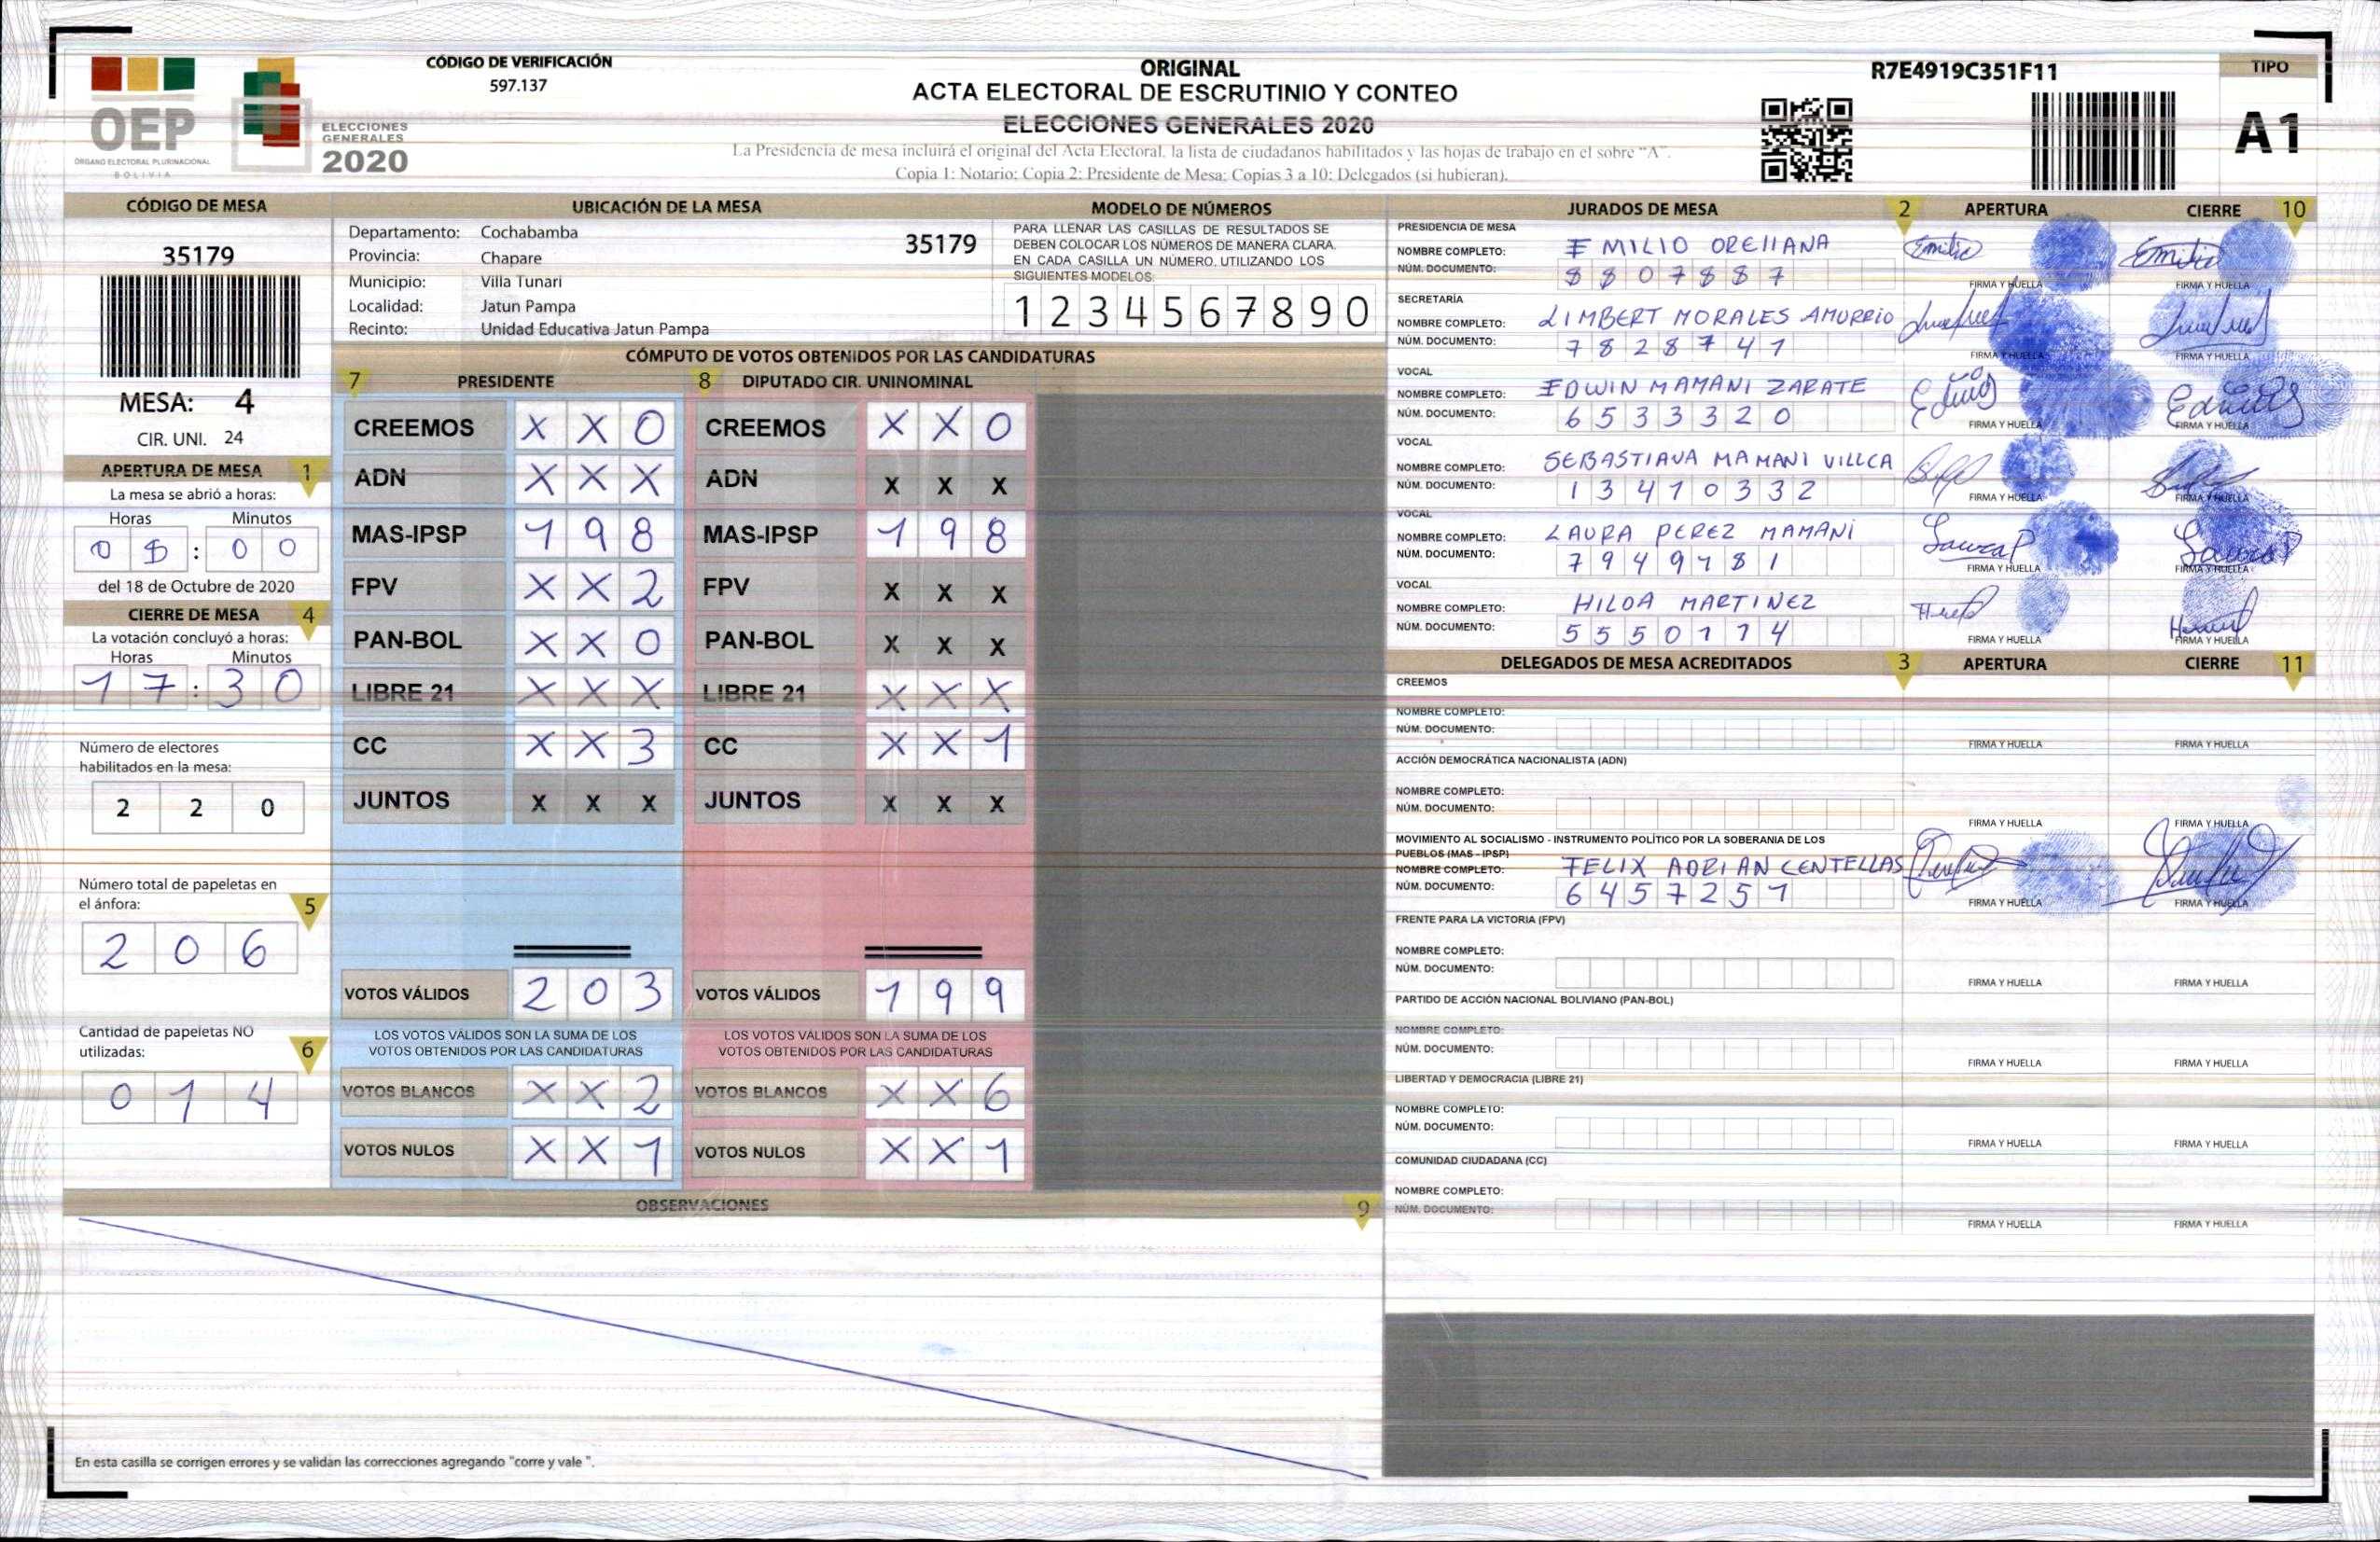 OEP
ÓRGANO ELECTORAL PLURINACIONAL
BOLIVIA
ELECCIONES
GENERALES
2020
CÓDIGO DE VERIFICACIÓN
597.137
ORIGINAL
ACTA ELECTORAL DE ESCRUTINIO Y CONTEO
ELECCIONES GENERALES 2020
La Presidencia de mesa incluirá el original del Acta Electoral, la lista de ciudadanos habilitados y las hojas de trabajo en el sobre "A".
Copia 1: Notario; Copia 2: Presidente de Mesa; Copias 3 a 10: Delegados (si hubieran).
R7E4919C351F11
TIPO
A1
CÓDIGO DE MESA
35179
MESA: 4
CIR. UNI. 24
APERTURA DE MESA 1
La mesa se abrió a horas:
Horas Minutos
0 8 : 0 0
del 18 de Octubre de 2020
CIERRE DE MESA 4
La votación concluyó a horas:
Horas Minutos
1 7 : 3 0
Número de electores
habilitados en la mesa:
2 2 0
Número total de papeletas en
el ánfora: 5
2 0 6
Cantidad de papeletas NO
utilizadas: 6
0 1 4
UBICACIÓN DE LA MESA
Departamento: Cochabamba
Provincia: Chapare
Municipio: Villa Tunari
Localidad: Jatun Pampa
Recinto: Unidad Educativa Jatun Pampa
35179
MODELO DE NÚMEROS
PARA LLENAR LAS CASILLAS DE RESULTADOS SE
DEBEN COLOCAR LOS NÚMEROS DE MANERA CLARA.
EN CADA CASILLA UN NÚMERO. UTILIZANDO LOS
SIGUIENTES MODELOS:
1 2 3 4 5 6 7 8 9 0
CÓMPUTO DE VOTOS OBTENIDOS POR LAS CANDIDATURAS
7 PRESIDENTE 8 DIPUTADO CIR. UNINOMINAL
CREEMOS X X 0 CREEMOS X X 0
ADN X X X ADN X X X
MAS-IPSP 1 9 8 MAS-IPSP 1 9 8
FPV X X 2 FPV X X X
PAN-BOL X X 0 PAN-BOL X X X
LIBRE 21 X X X LIBRE 21 X X X
CC X X 3 CC X X 1
JUNTOS X X X JUNTOS X X X
VOTOS VÁLIDOS 2 0 3 VOTOS VÁLIDOS 1 9 9
LOS VOTOS VÁLIDOS SON LA SUMA DE LOS LOS VOTOS VÁLIDOS SON LA SUMA DE LOS
VOTOS OBTENIDOS POR LAS CANDIDATURAS VOTOS OBTENIDOS POR LAS CANDIDATURAS
VOTOS BLANCOS X X 2 VOTOS BLANCOS X X 6
VOTOS NULOS X X 1 VOTOS NULOS X X 1
OBSERVACIONES 9
En esta casilla se corrigen errores y se validan las correcciones agregando "corre y vale ".
JURADOS DE MESA 2 APERTURA CIERRE 10
PRESIDENCIA DE MESA
NOMBRE COMPLETO: EMILIO ORELLANA Emilio Emilio
NÚM. DOCUMENTO: 8 8 0 7 8 8 7
FIRMA Y HUELLA FIRMA Y HUELLA
SECRETARÍA
NOMBRE COMPLETO: LIMBERT MORALES AMURRIO
NÚM. DOCUMENTO: 7 8 2 8 7 4 1
FIRMA Y HUELLA FIRMA Y HUELLA
VOCAL
NOMBRE COMPLETO: EDWIN MAMANI ZARATE Edwin Edwin
NÚM. DOCUMENTO: 6 5 3 3 3 2 0
FIRMA Y HUELLA FIRMA Y HUELLA
VOCAL
NOMBRE COMPLETO: SEBASTIANA MAMANI VILLCA
NÚM. DOCUMENTO: 1 3 4 1 0 3 3 2
FIRMA Y HUELLA FIRMA Y HUELLA
VOCAL
NOMBRE COMPLETO: LAURA PEREZ MAMANI Laura P Laura P
NÚM. DOCUMENTO: 7 9 4 9 1 8 1
FIRMA Y HUELLA FIRMA Y HUELLA
VOCAL
NOMBRE COMPLETO: HILDA MARTINEZ
NÚM. DOCUMENTO: 5 5 5 0 1 1 4
FIRMA Y HUELLA FIRMA Y HUELLA
DELEGADOS DE MESA ACREDITADOS 3 APERTURA CIERRE 11
CREEMOS
NOMBRE COMPLETO:
NÚM. DOCUMENTO:
FIRMA Y HUELLA FIRMA Y HUELLA
ACCIÓN DEMOCRÁTICA NACIONALISTA (ADN)
NOMBRE COMPLETO:
NÚM. DOCUMENTO:
FIRMA Y HUELLA FIRMA Y HUELLA
MOVIMIENTO AL SOCIALISMO - INSTRUMENTO POLÍTICO POR LA SOBERANIA DE LOS
PUEBLOS (MAS - IPSP)
NOMBRE COMPLETO: FELIX ADRIAN CENTELLAS
NÚM. DOCUMENTO: 6 4 5 7 2 5 1
FIRMA Y HUELLA FIRMA Y HUELLA
FRENTE PARA LA VICTORIA (FPV)
NOMBRE COMPLETO:
NÚM. DOCUMENTO:
FIRMA Y HUELLA FIRMA Y HUELLA
PARTIDO DE ACCIÓN NACIONAL BOLIVIANO (PAN-BOL)
NOMBRE COMPLETO:
NÚM. DOCUMENTO:
FIRMA Y HUELLA FIRMA Y HUELLA
LIBERTAD Y DEMOCRACIA (LIBRE 21)
NOMBRE COMPLETO:
NÚM. DOCUMENTO:
FIRMA Y HUELLA FIRMA Y HUELLA
COMUNIDAD CIUDADANA (CC)
NOMBRE COMPLETO:
NÚM. DOCUMENTO:
FIRMA Y HUELLA FIRMA Y HUELLA